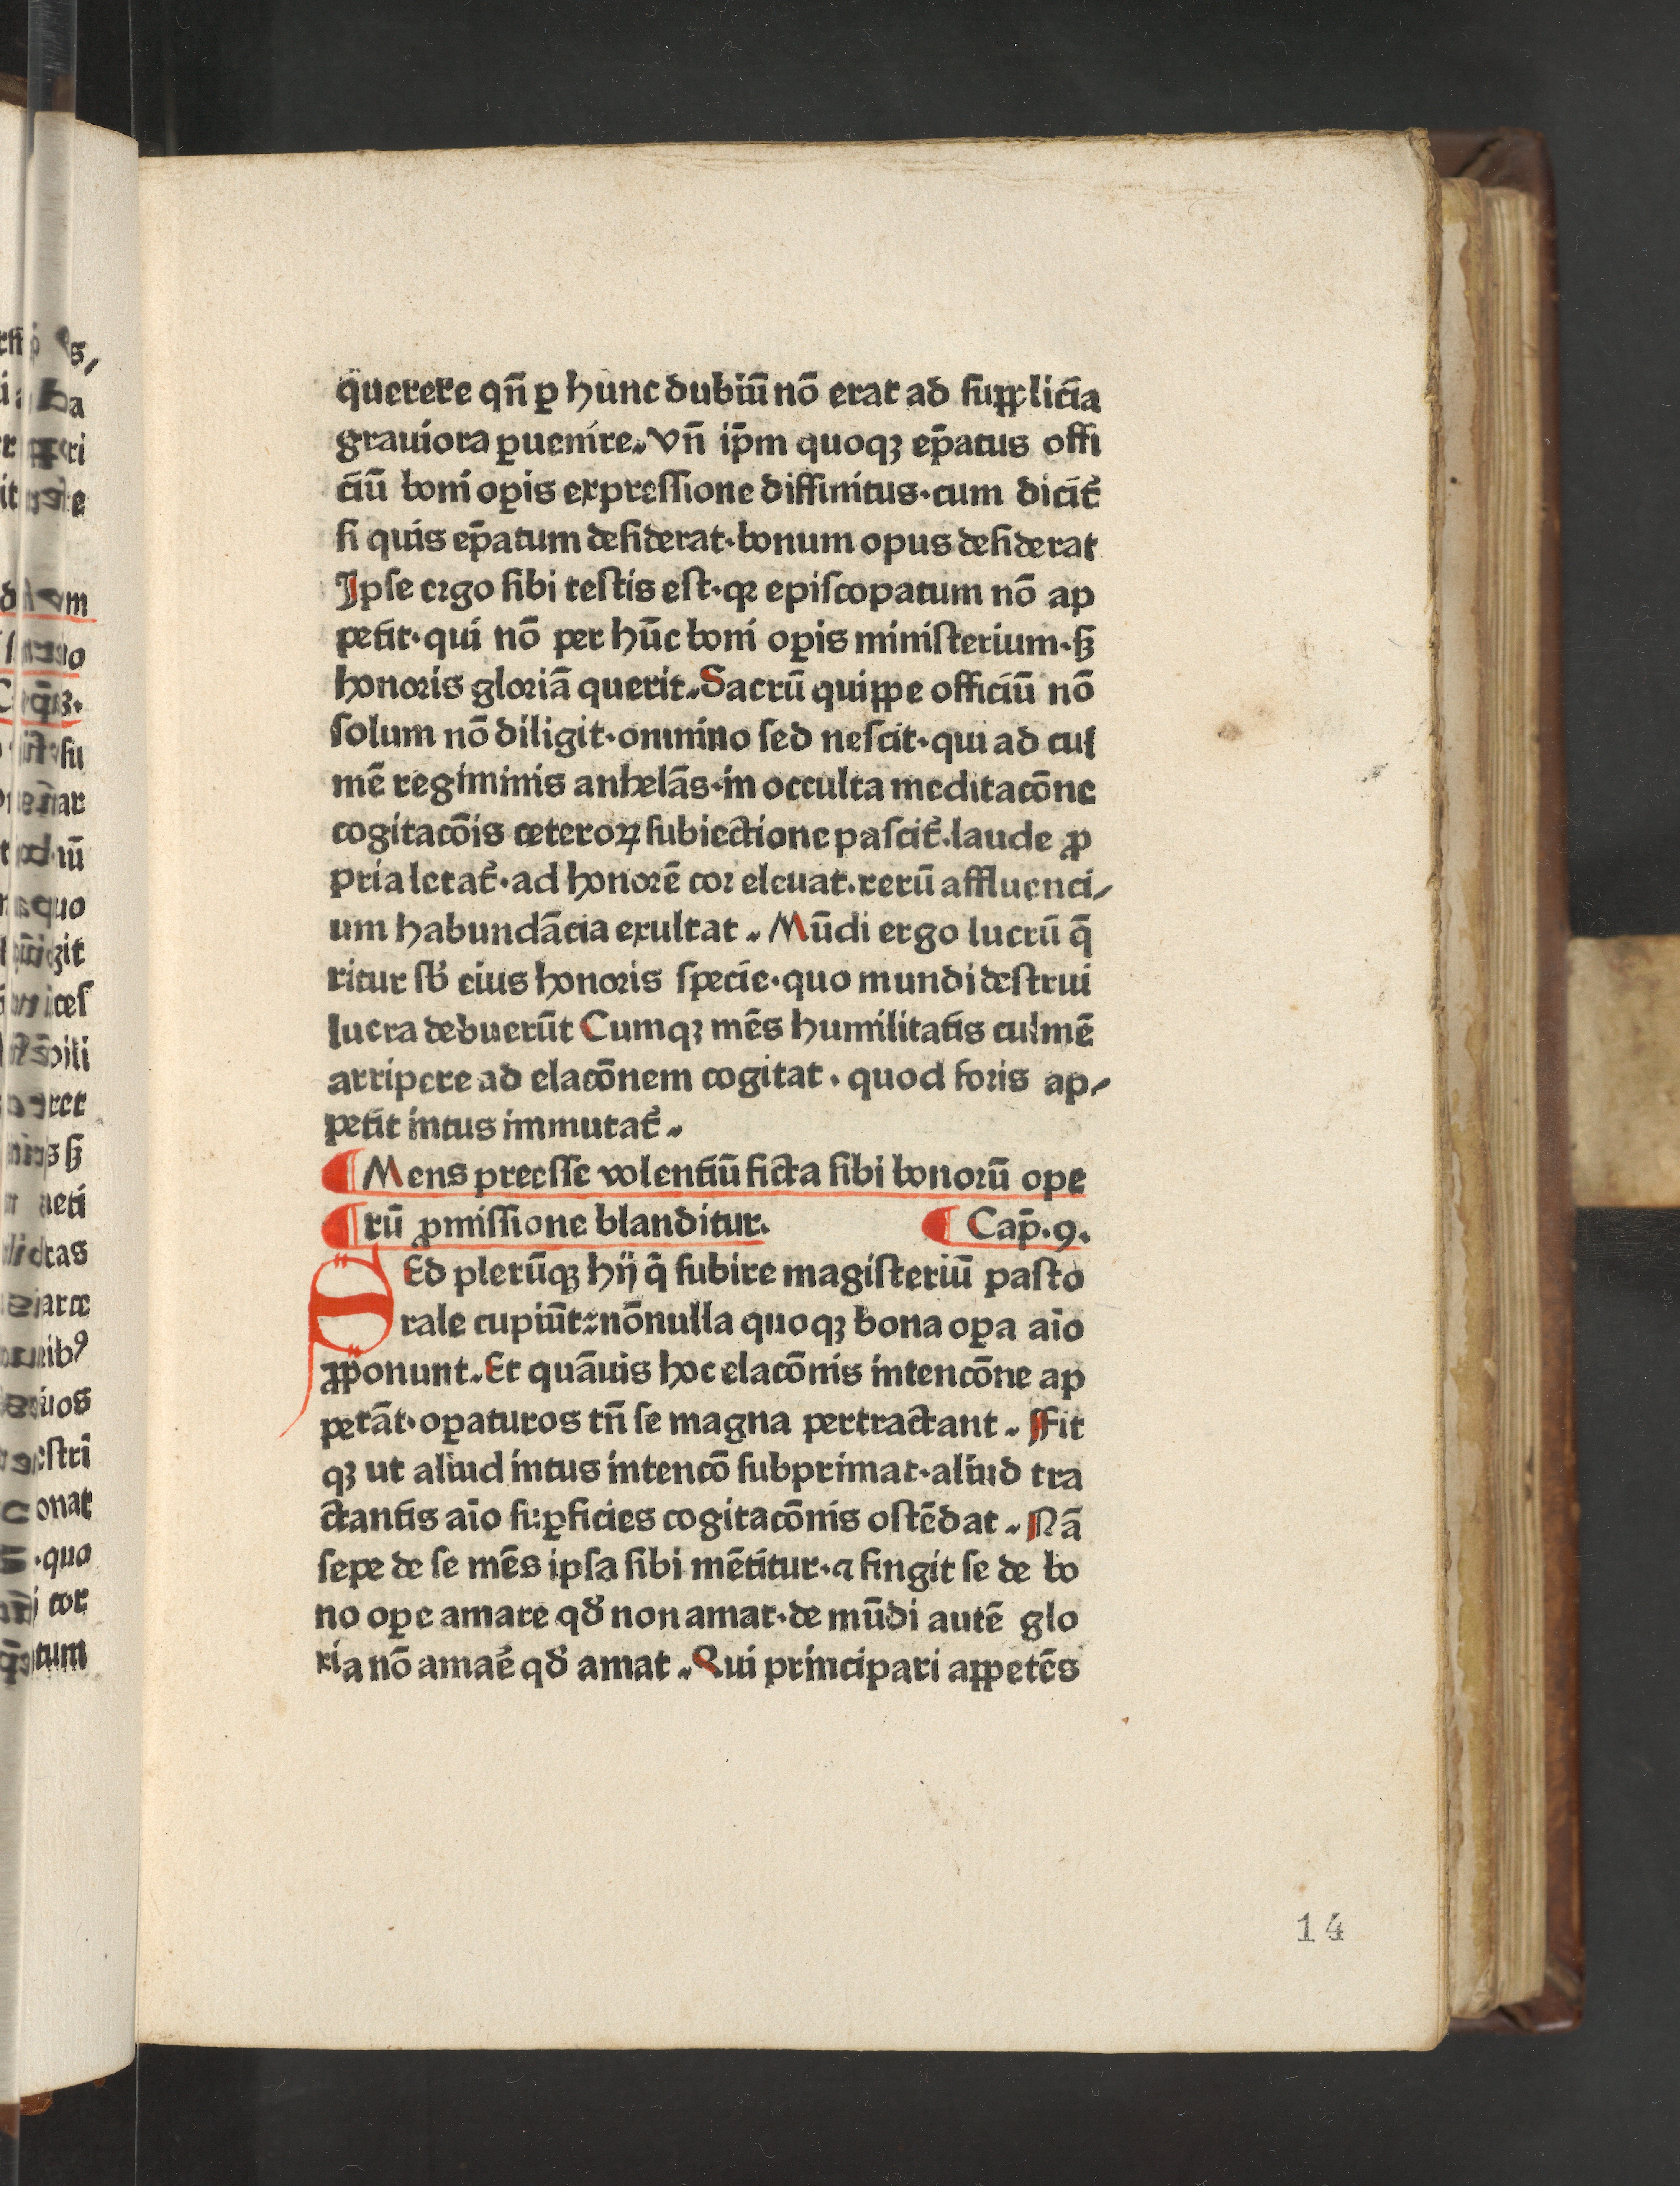 querere qn̄ ꝑ hunc dubiū nō erat ad ſupplicia
grauiora ꝑuenire. Vn̄ ip̄m quoqꝫ ep̄atus offi
ciū boni oꝑis expreſſione diffinitus·cum dicit᷑
ſi quis ep̄atum deſiderat·bonum opus deſiderat
Ipſe ergo ſibi teſtis eſt·qꝛ epiſcopatum nō ap
petit·qui nō per hūc boni oꝑis miniſterium·ſꝫ
honoris gloriā querit. Sacrū quippe officiū nō
ſolum nō diligit·omnino ſed neſcit·qui ad cul
mē regiminis anhelās·in occulta meditacōne
cogitacōis ceteroꝝ ſubiectione paſcit᷑·laude ꝓ
pria letat᷑·ad honorē cor eleuat·rerū affluenci⸗
um habundācia exultat. Mūdi ergo lucrū q̄
ritur ſb̓ eius honoris ſpecie·quo mundi deſtrui
lucra debuerūt Cumqꝫ mēs humilitatis culmē
arripere ad elacōnem cogitat·quod foris ap⸗
petit intus immutat᷑.
¶ Mens preeſſe volentiū ficta ſibi bonorū ope
¶ rū ꝓmiſſione blanditur. ¶ Cap̄·9·
SEd plerūqꝫ hij q̄ ſubire magiſteriū paſto
rale cupiūt: nōnulla quoqꝫ bona oꝑa aīo
ꝓponunt. Et quāuis hoc elacōnis intencōne ap
petāt·oꝑaturos tn̄ ſe magna pertractant. Fit
qꝫ ut aliud intus intencō ſubprimat·aliud tra
ctantis aīo ſuꝑficies cogitacōnis oſtēdat. Nā
ſepe de ſe mēs ipſa ſibi mētitur·⁊ fingit ſe de bo
no oꝑe amare qd̓ non amat·de mūdi autē glo
ria nō amar̓e qd̓ amat. Qui principari appetēs
14